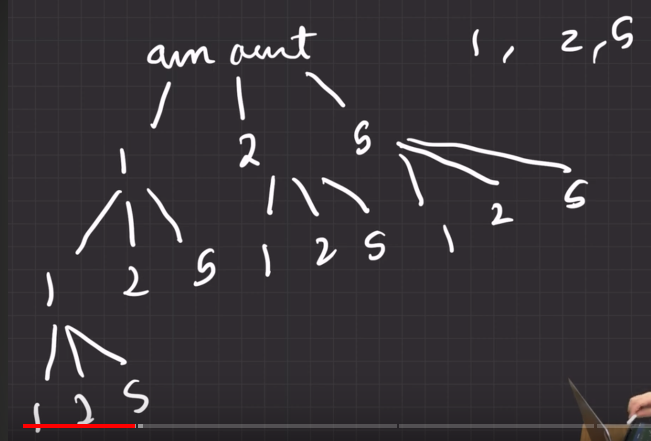 amount 1, 2, 5
1 2 5
1 2 5 1 2 5 1 2 5
1 2 5